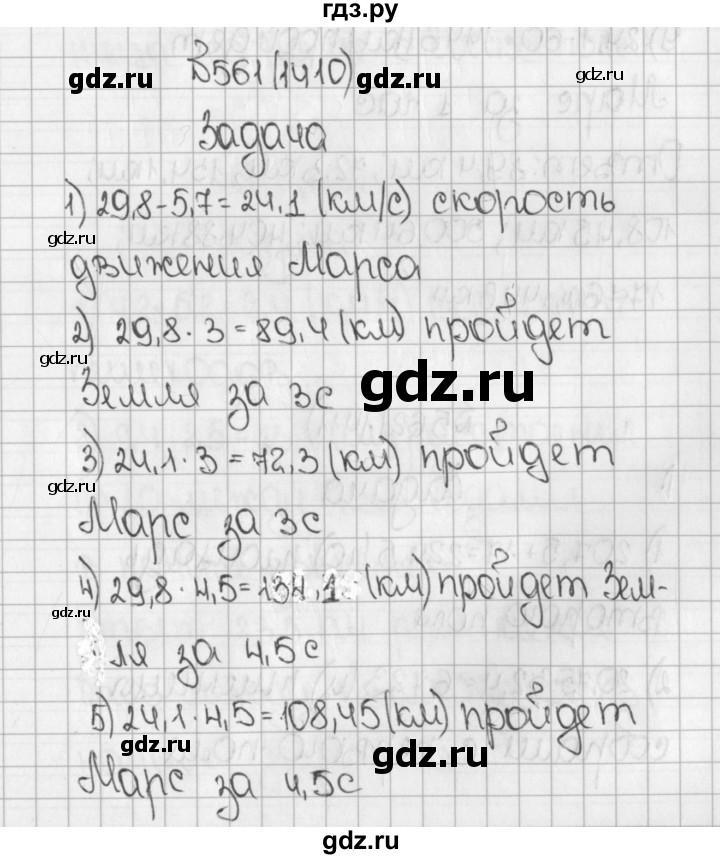 гдз.ру
В561(1410)
gdz.ru gdz.ru gdz.ru
Задача
1) 29,8-5,7=24,1 (км/с) скорость
gdz.ru
движения Марса
2) 29,8·3=89,4(км) пройдет
gdz.ru
gdz.ru
Земля за 3с
3) 24,1·3=72,3(км) пройдет
gdz.ru
Марс за 3с
4) 29,8·4,5=134,1 (км) пройдет Зем-
gdz.ru
ля за 4,5с
5) 24,1·4,5=108,45(км) пройдет
gdz.ru
gdz.ru
Марс за 4,5с
gdz.ru